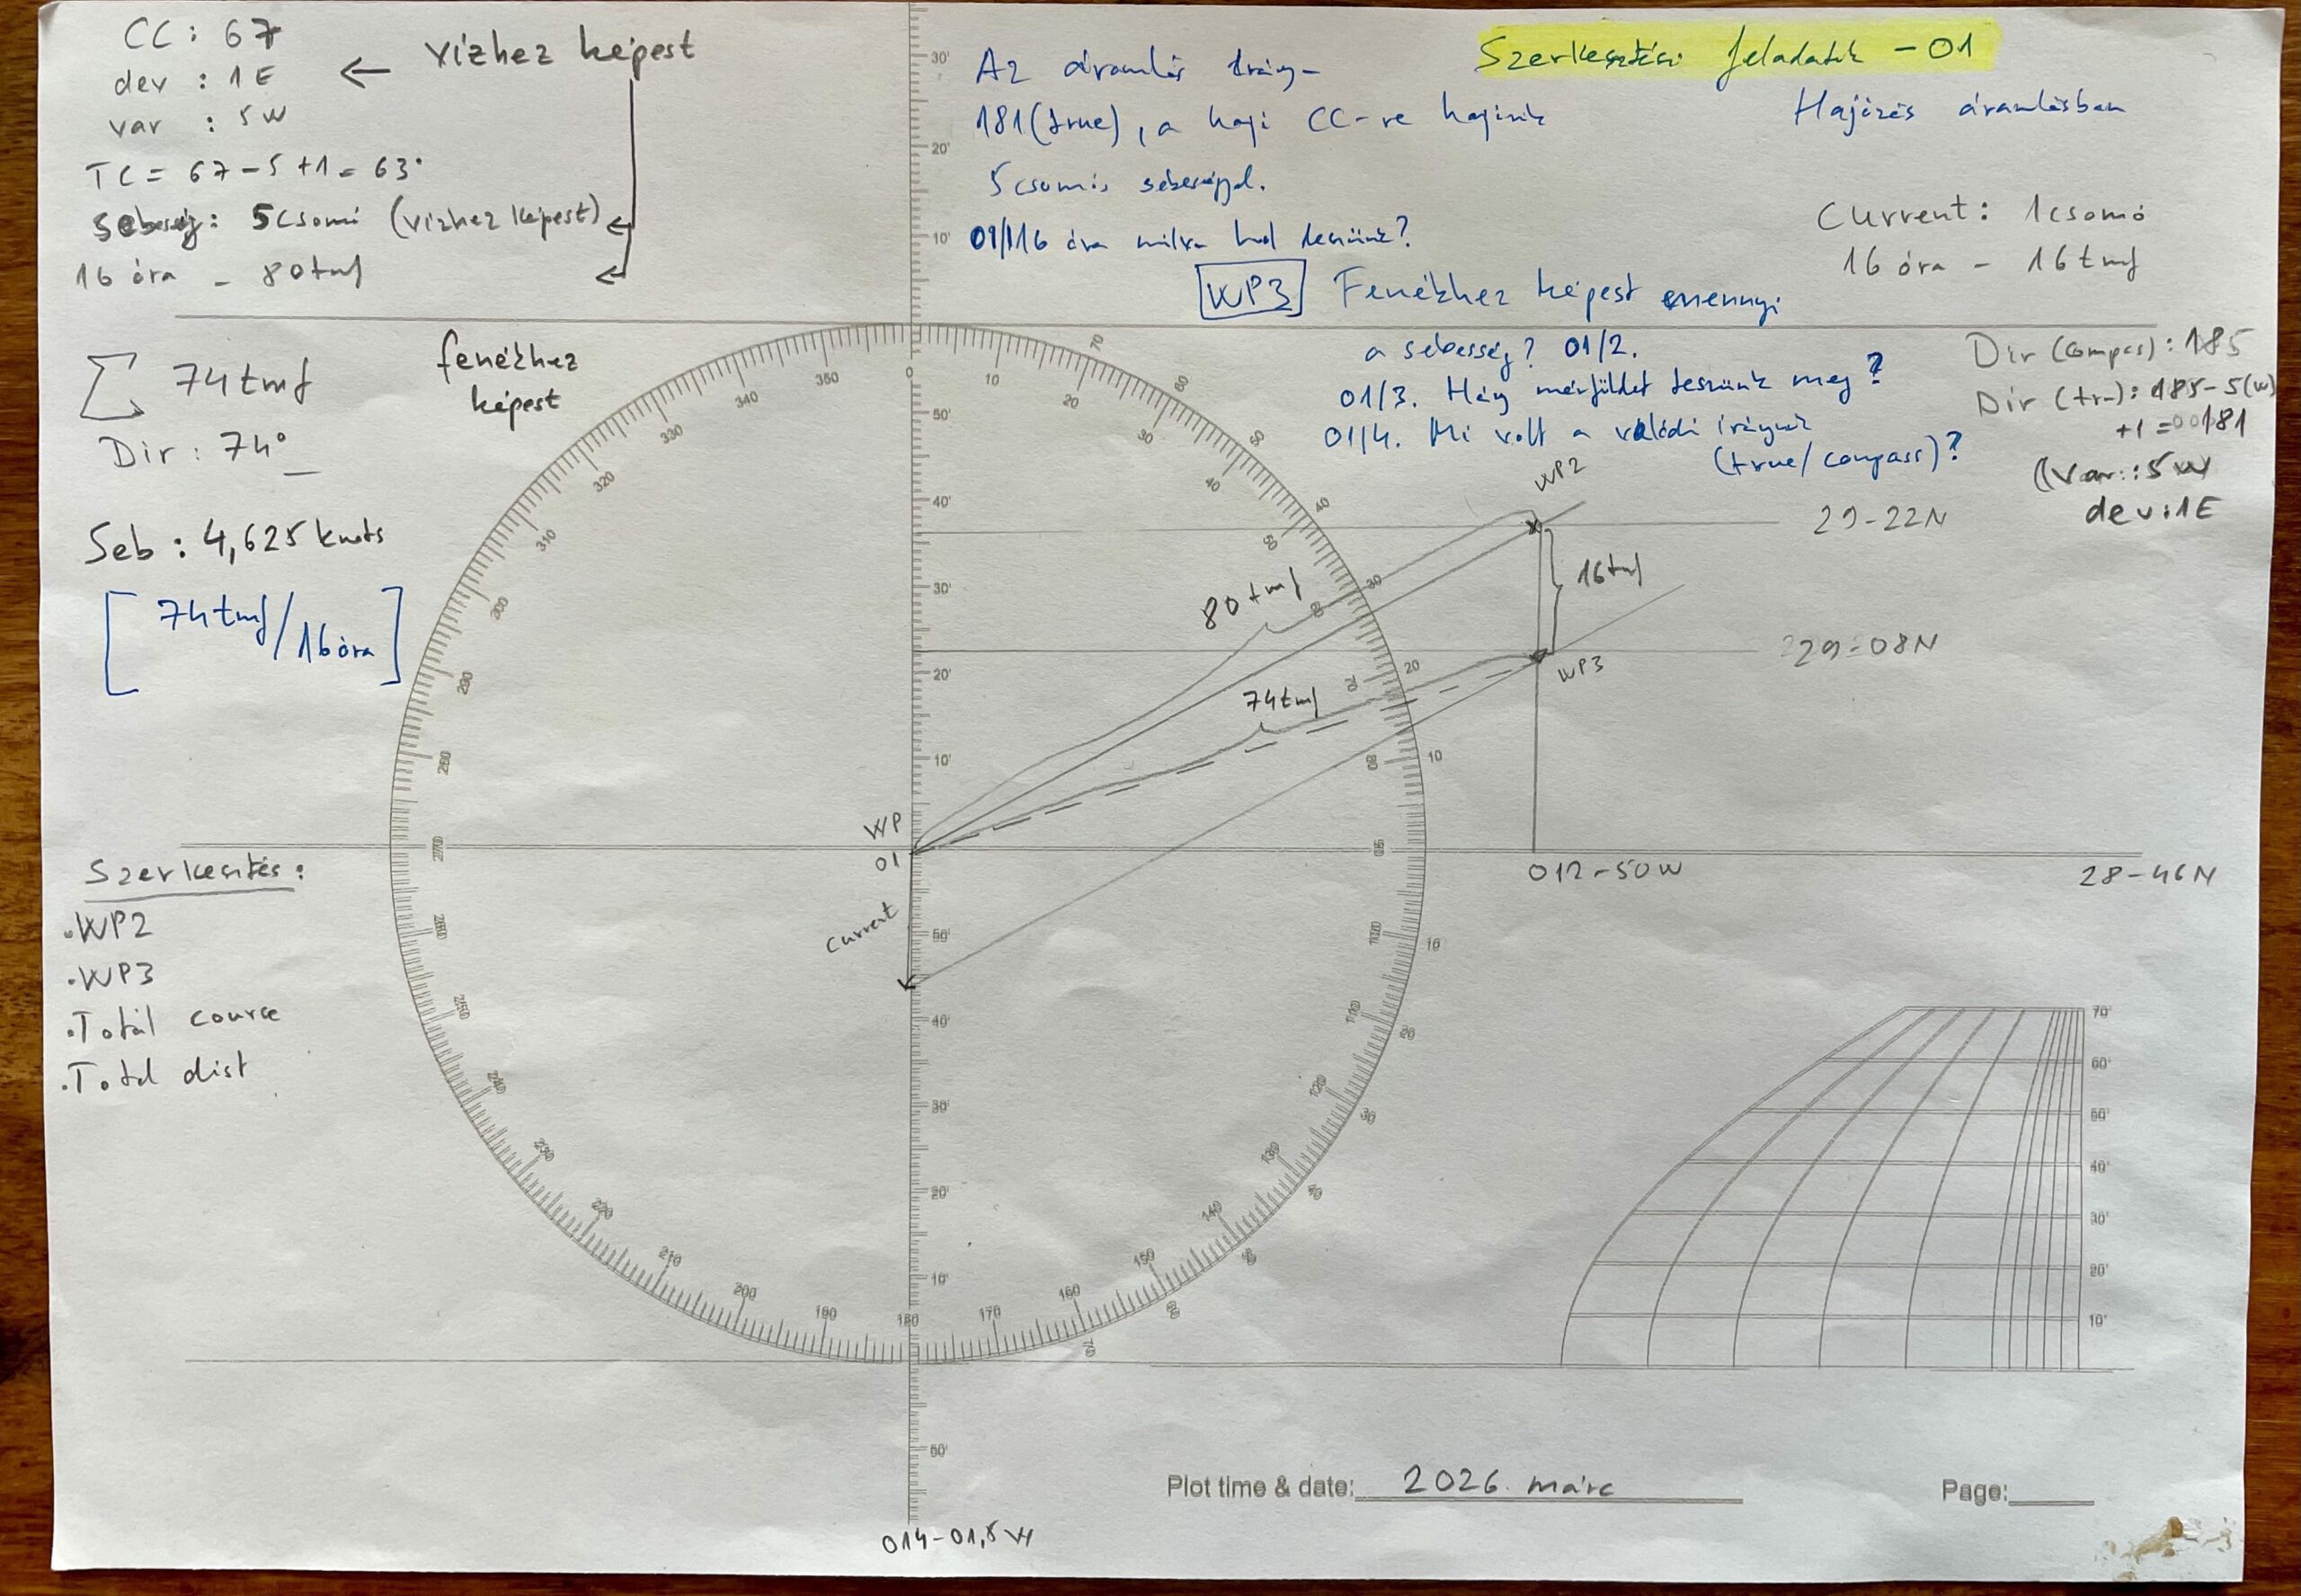 CC: 67
dev : 1E
var : 5W
← vízhez képest
TC = 67-5+1 = 63°
Sebesség: 5csomó (vízhez képest)
16 óra - 80tmf
Az áramlás irány-
181(true), a hajó CC-re hajózik
5csomós sebességgel.
01/1 16 óra múlva hol leszünk?
WP3
Fenékhez képest mennyi
a sebesség? 01/2.
01/3. Hány mérföldet teszünk meg?
01/4. Mi volt a valódi irányunk
(true/compass)?
Szerkesztési feladatok - 01
Hajózás áramlásban
Current: 1csomó
16 óra - 16tmf
Dir (compas): 185
Dir (tr-): 185-5(w)
+1 = 181
Var.: 5W
dev: 1E
Σ 74tmf
fenékhez
képest
Dir: 74°
Seb: 4,625 knots
[74tmf/16óra]
Szerkesztés:
.WP2
.WP3
.Totál course
.Totál dist
30'
20'
10'
0
50'
40'
30'
20'
10'
50'
40'
30'
20'
10'
50'
10
20
30
40
50
60
70
80
90
100
110
120
130
140
150
160
170
180
190
200
210
220
230
240
250
260
270
280
290
300
310
320
330
340
350
70
60
50
40
30
20
10
10
20
30
40
50
60
70
WP2
80tmf
16tmf
29-22N
29-08N
WP3
74tmf
WP
01
Current
012-50W
28-46N
70'
60'
50'
40'
30'
20'
10'
Plot time & date: 2026. márc
Page:
014-01,5W